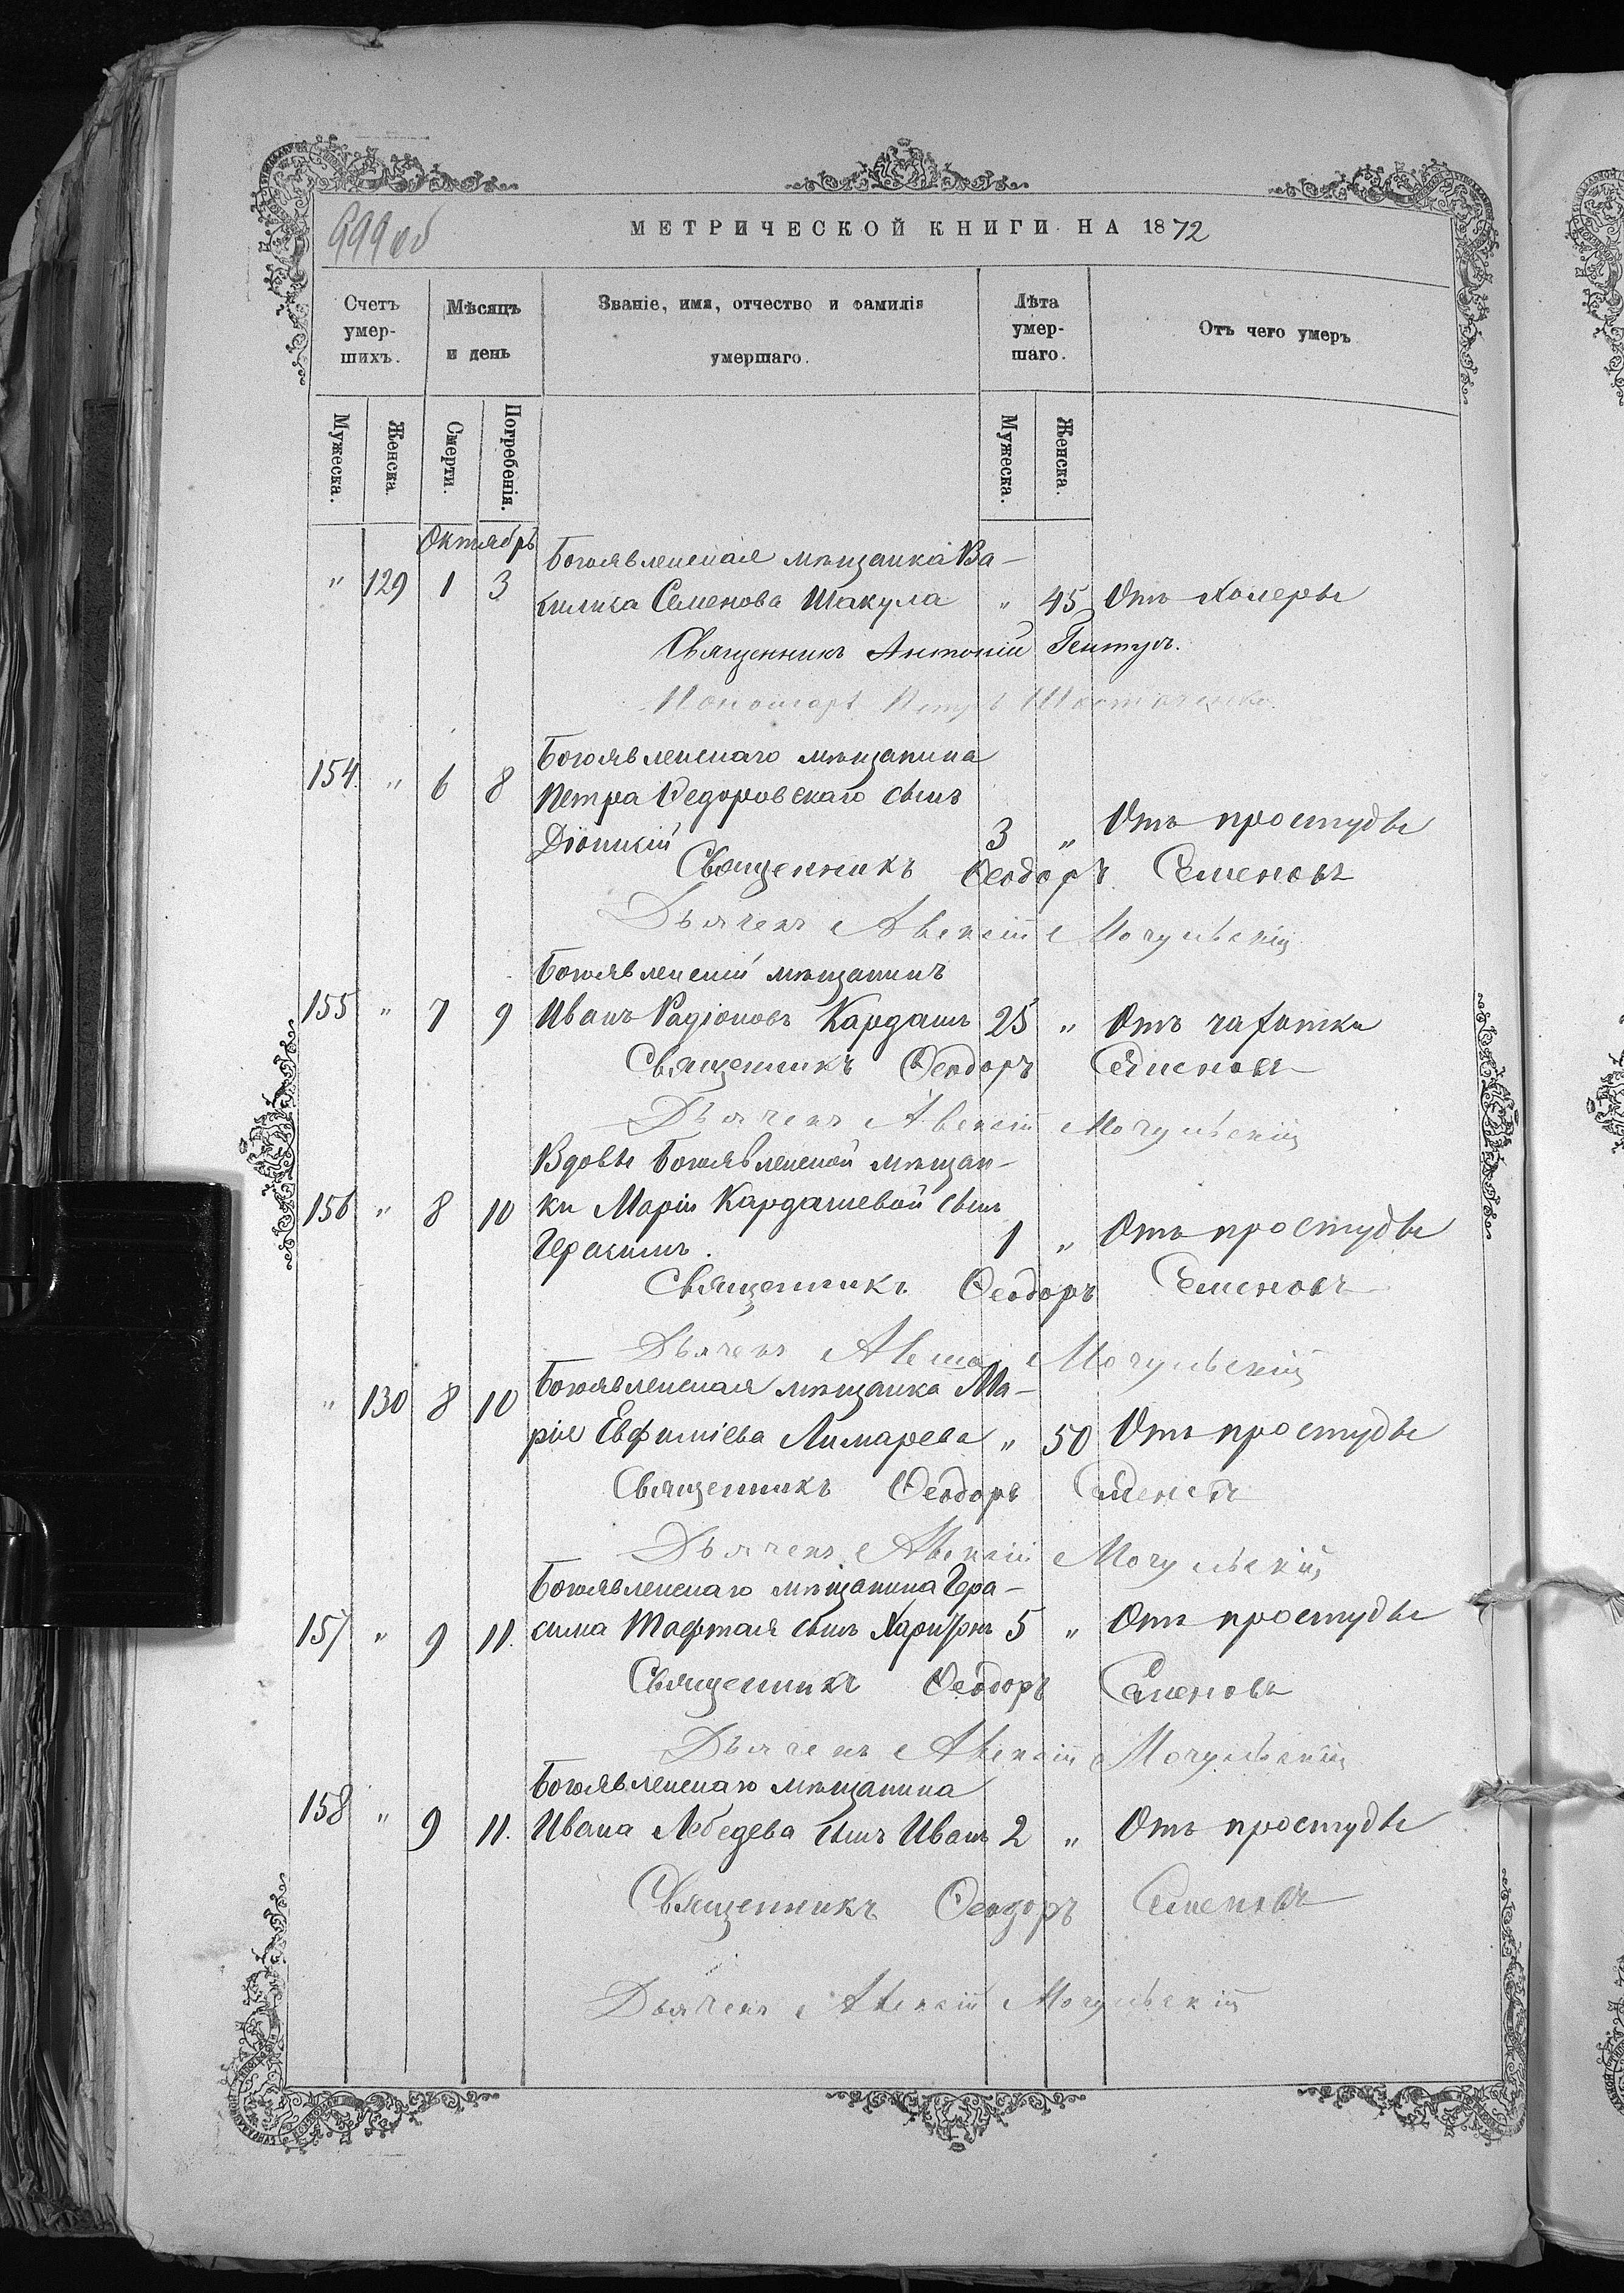 999 об
МЕТРИЧЕСКОЙ КНИГИ НА 1872
Счетъ умер-шихъ.
Мѣсяцъ и день
Званіе, имя, отчество и фамилія умершаго.
Лѣта умер-шаго.
Отъ чего умеръ
Мужеска. Женска. Смерти. Погребенія. Мужеска. Женска.
Октябрь
Богоявленская мѣщанка Ва-
" 129 1 3 силиса Семенова Шакула " 45 Отъ холеры
Священникъ Антоній
Пономарь Петръ
Богоявленскаго мѣщанина
154. " 6 8 Петра Федоровскаго сынъ
Діонисій 3 " Отъ простуды
Священникъ Ѳеодоръ Семеновъ
Дьячекъ Алексій Мочульскій
Богоявленскій мѣщанинъ
155 " 7 9 Иванъ Радіоновъ Кардашъ 25 " Отъ чахотки
Священникъ Ѳеодоръ Семеновъ
Дьячекъ Алексій Мочульскій
Вдовы Богоявленской мѣщан-
156 " 8 10 ки Маріи Кардашевой сынъ
Герасимъ. 1 " Отъ простуды
Священникъ Ѳеодоръ Семеновъ
Дьячекъ Алексій Мочульскій
Богоявленская мѣщанка Ма-
" 130 8 10
рія Евфиміева Лимарева " 50 Отъ простуды
Священникъ Ѳеодоръ Семеновъ
Дьячекъ Алексій Мочульскій
Богоявленскаго мѣщанина Гера-
157 " 9 11. сима Тафтая сынъ 5 " Отъ простуды
Священникъ Ѳеодоръ Семеновъ
Дьячекъ Алексій Мочульскій
Богоявленскаго мѣщанина
158 " 9 11. Ивана Лебедева сынъ Иванъ 2 " Отъ простуды
Священникъ Ѳеодоръ Семеновъ
Дьячекъ Алексій Мочульскій